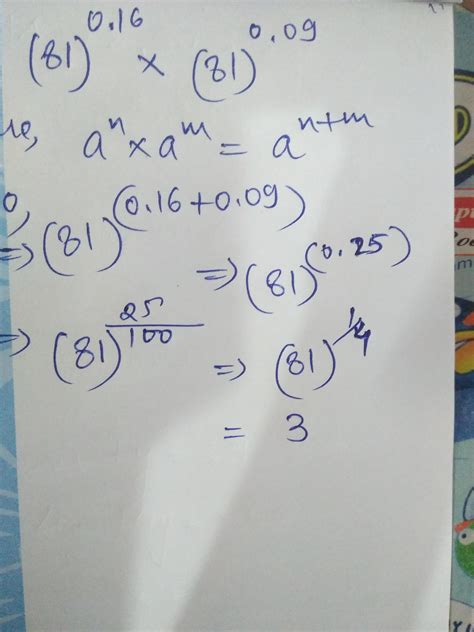 (81)^0.16 × (81)^0.09
a^n × a^m = a^n+m
⇒ (81)^(0.16+0.09)
⇒ (81)^(0.25)
⇒ (81)^25/100 ⇒ (81)^1/4
= 3